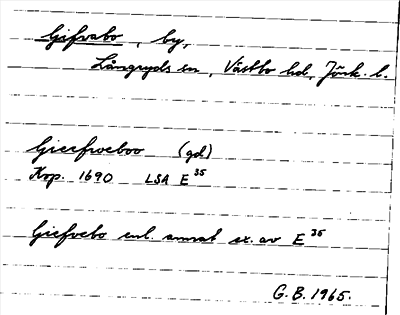 Gifvabo, by,
Långaryds sn, Västbo hd, Jönk. l.
Gieefweboo (gd)
Kop. 1690 LSA E 35
Giefvebo enl. annat ex. av E 35
G.B. 1965.